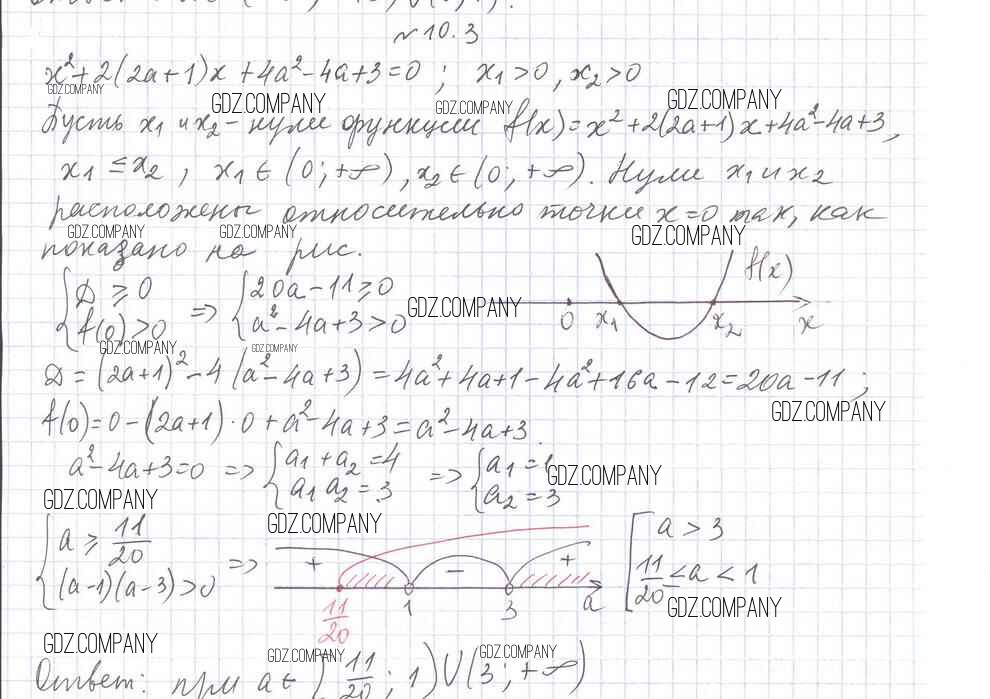 № 10.3
x² + 2(2a+1)x + 4a² - 4a + 3 = 0 ; x₁ > 0, x₂ > 0
GDZ.COMPANY
GDZ.COMPANY GDZ.COMPANY GDZ.COMPANY
Пусть x₁ и x₂ - нули функции f(x) = x² + 2(2a+1)x + 4a² - 4a + 3,
x₁ ≤ x₂, x₁ ∈ (0; +∞), x₂ ∈ (0; +∞). Нули x₁ и x₂
расположены относительно точки x = 0 так, как
GDZ.COMPANY GDZ.COMPANY GDZ.COMPANY
показано на рис.
{ D ≥ 0 => { 20a - 11 ≥ 0 f(x)
{ f(0) > 0 { a² - 4a + 3 > 0 GDZ.COMPANY
0 x₁ x₂ x
GDZ.COMPANY GDZ.COMPANY
D = (2a+1)² - 4(a² - 4a + 3) = 4a² + 4a + 1 - 4a² + 16a - 12 = 20a - 11 ;
GDZ.COMPANY
f(0) = 0 - (2a+1)·0 + a² - 4a + 3 = a² - 4a + 3.
a² - 4a + 3 = 0 => { a₁ + a₂ = 4 => { a₁ = 1
{ a₁ a₂ = 3 { a₂ = 3
GDZ.COMPANY
GDZ.COMPANY
GDZ.COMPANY
{ a ≥ 11/20 => + - + [ a > 3
{ (a-1)(a-3) > 0 [ 11/20 ≤ a < 1
11/20 1 3 a
GDZ.COMPANY
GDZ.COMPANY GDZ.COMPANY GDZ.COMPANY
Ответ: при a ∈ [11/20; 1) ∪ (3; +∞)